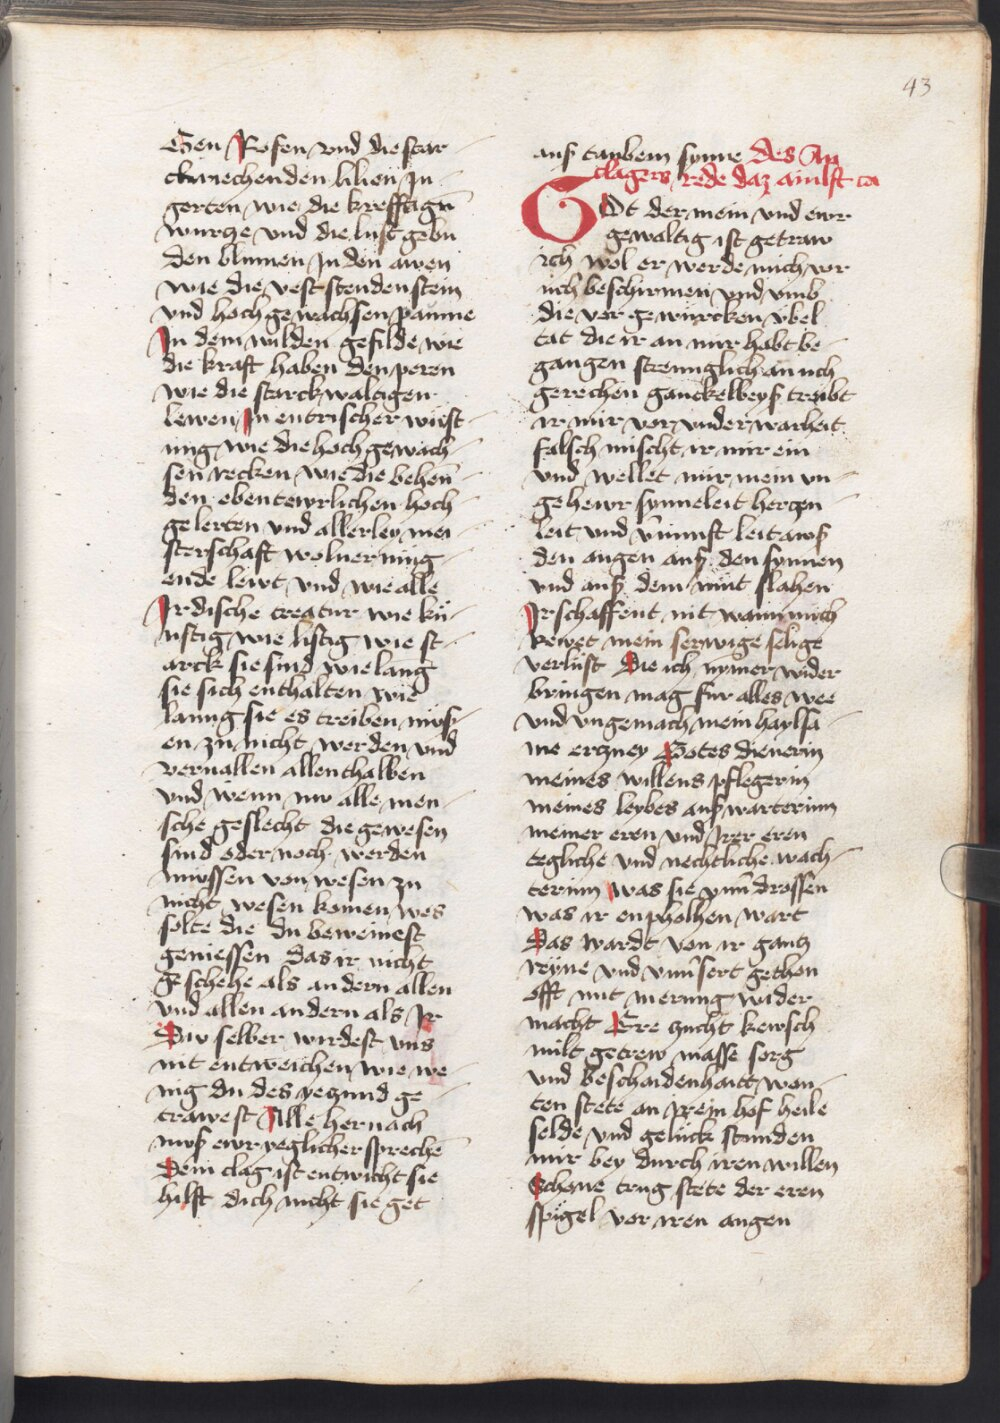 43
tzen Rosen vnd die star
ckriechenden lilien Jn
gerten wie die krefftigen̄
wurcze vnd die lustgebn
den blumen Jn den awen
wie die veststenden stein
vnd hochgewachsen paume
Jn dem wilden gefilde wie
die kraft haben den peren
wie die starckwaltigen
lewen Jn entrischer wüst
nng wie die hochgewach
sen̄ recken wie die behen̄
den ebentewrlichen hoch
gelerten vnd allerley mei
sterschaft wolvermüg
ende lewt vnd wie alle
Jrdische creatur wie kü
nstig wie listig wie st
arck sie sind wie lang
sie sich enthalten wie
lanng sie es treiben müß
en zu nicht werden vnd
veruallen allenthalben
vnd wenn nw alle men
sche geslecht die gewesen
sind oder noch werden
müssen von wesen zu
nicht wesen komen wes
solte die du beweinest
geniessen das ir nicht
geschehe als andern allen
vnd allen andern als Jr
Dw selber wirdest vns
nit entweichen wie we
nig du des yeczund ge
trawest Alle hernach
mus ewr yeglicher spreche̅
Dein clag ist entwicht sie
hilft dich nicht sie get
auß taubem synne Des An
clagers rede daz ainlft ca
GOt der mein vnd ewr
gewaltig ist getraw
ich wol er werde mich vor
uch beschirmen vnd vmb
die vorgewürckten v̈bel
tat die ir an mir habt be
gangen strenniglich an uch
gerechen ganckelweyß treibt
ir mir vor vnder warheit
falsch mischt ir mir ein
vnd wellet mir mein vn
gehewr synneleit herczen
leit vnd v̄nunft leit awß
den augen auß den synnen
vnd auß dem müt slahen
Jr schaffent nit wann mich
Rewet mein serwige selige
verlüst Die ich nymer wider
bringen mag fur alles wee
vnd vngemach mein haylsa
me erczney Gotes dienerin
meines willens pflegerin
meines leybes auß warterinn
meiner eren vnd Jrer eren
tegliche vnd nechtliche wach
terinn was sie vnu̅drossen
was ir enpholhen wart
Das wardt von ir gantz
reyne vnd vnu̅sert gethon
offt mit merung wider
macht Ere zucht kewsch
milt getrew masse sorg
vnd bescheidenhaitt won
ten stete an Jrem hof heile
selde vnd gelück stunden
mir bey durch iren willen
Schame trug stete der eren
spigel vor iren augen